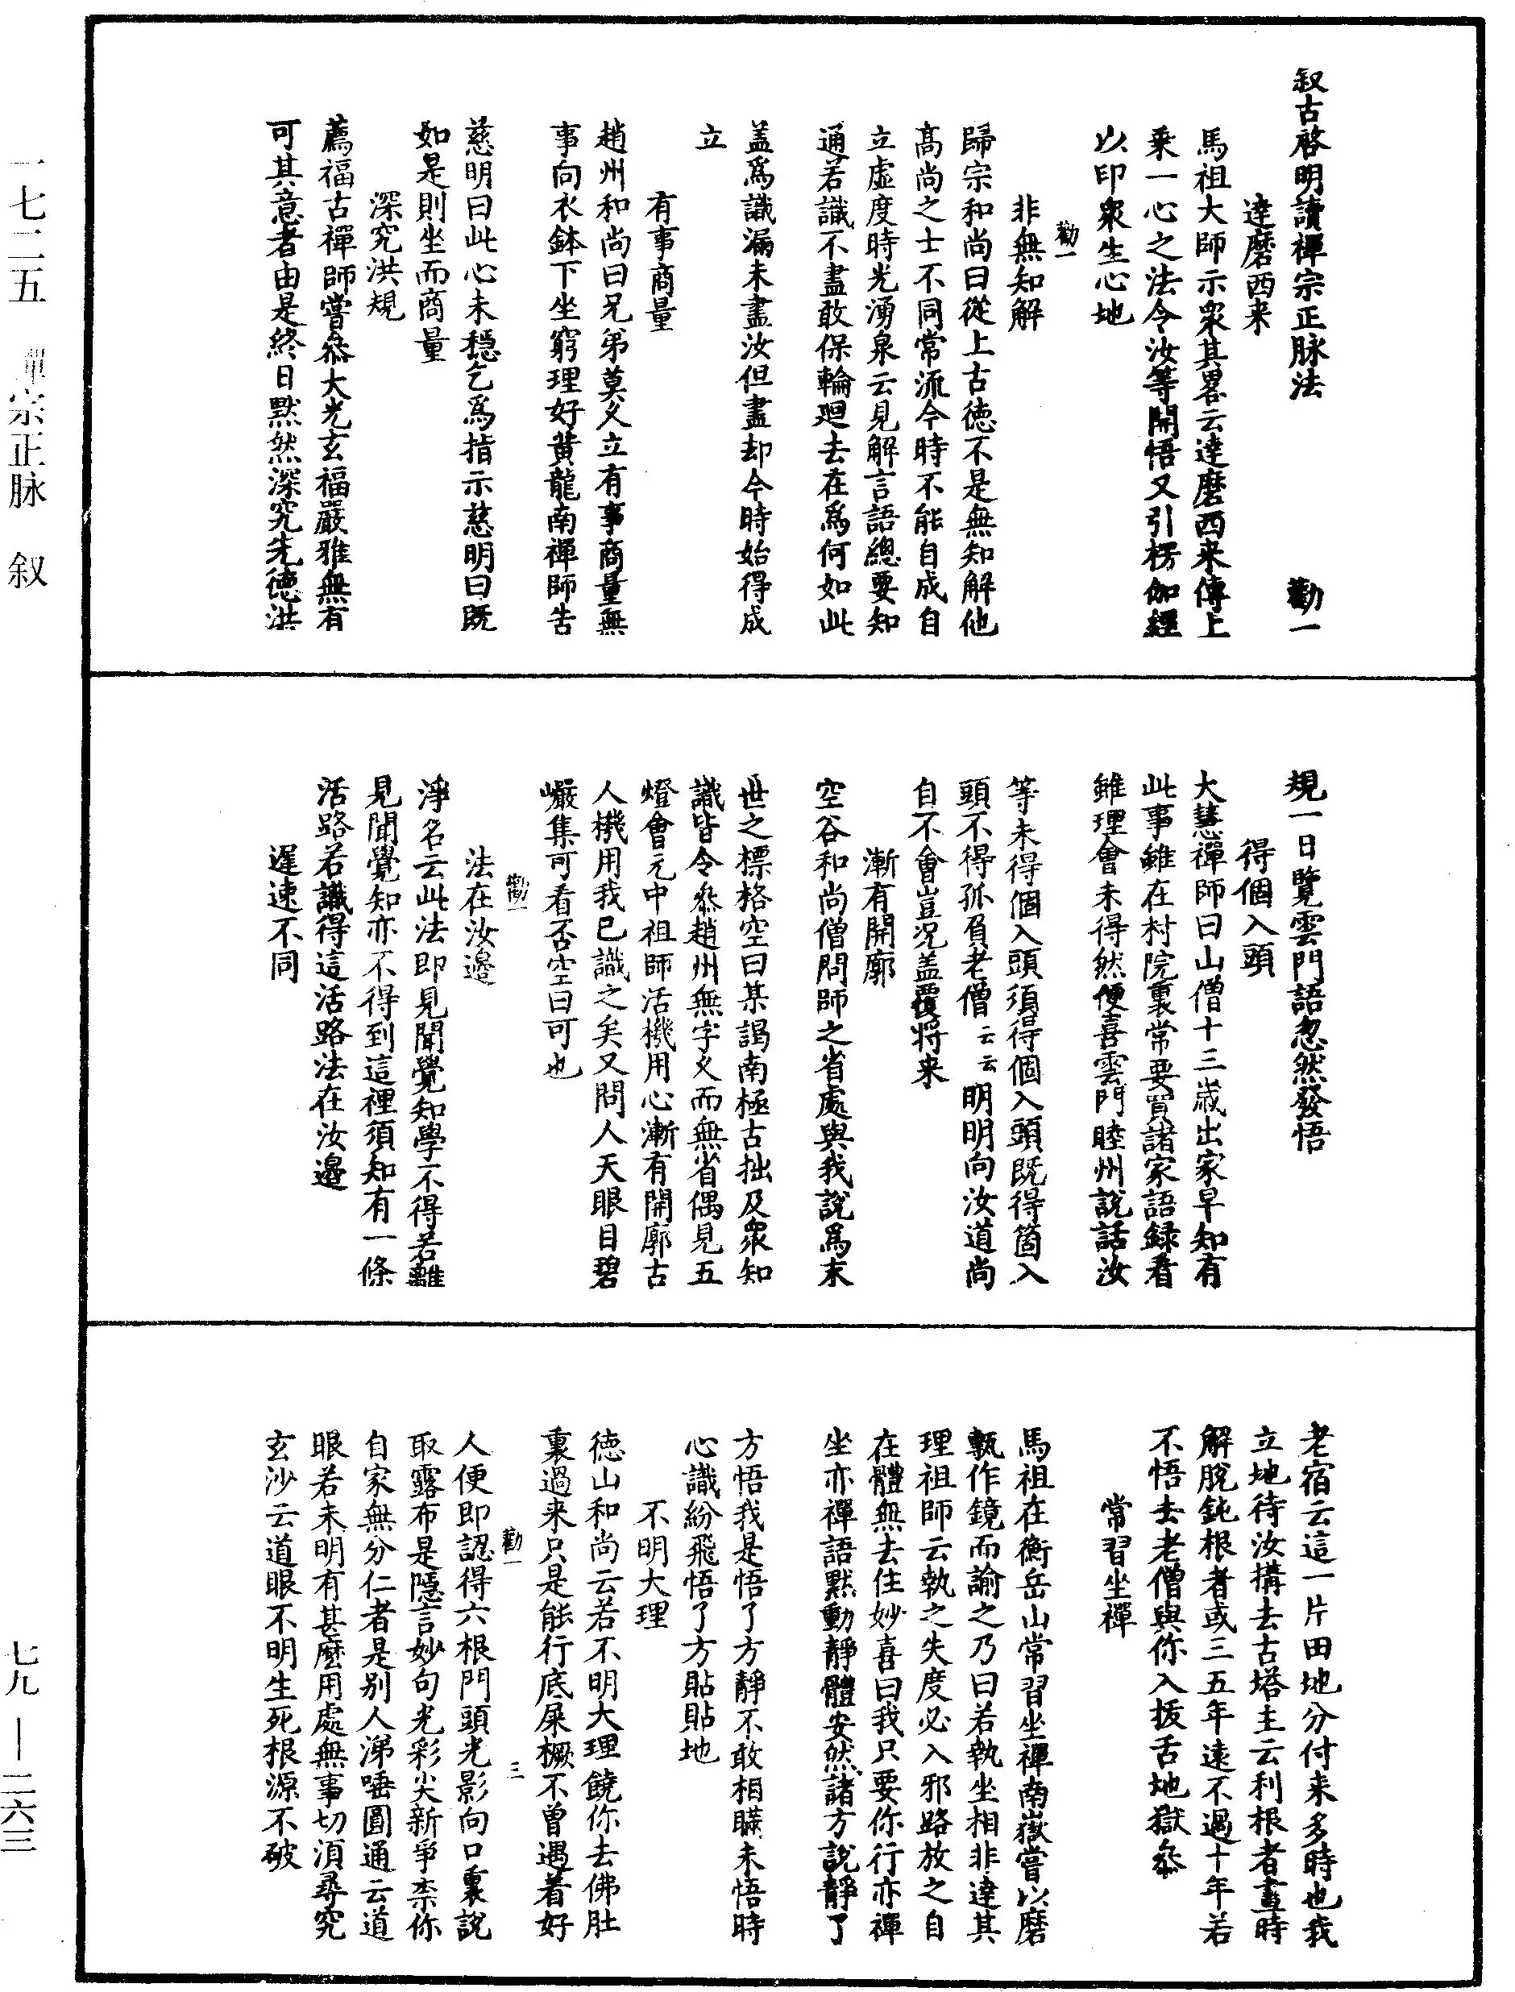 叙古啓明讀禪宗正脉法　勸一
達磨西来
馬祖大師示衆其畧云達磨西来傳上
乗一心之法令汝等開悟又引楞伽經
以印衆生心地
勸一
非無知解
歸宗和尚曰從上古徳不是無知解他
髙尚之士不同常流今時不能自成自
立虚度時光湧泉云見解言語總要知
通若識不盡敢保輪廻去在爲何如此
盖爲識漏未盡汝但盡却今時始得成
立
有事商量
趙州和尚曰兄弟莫久立有事商量無
事向衣鉢下坐窮理好黄龍南禪師告
慈明曰此心未穏乞爲指示慈明曰既
如是則坐而商量
深究洪規
薦福古禪師嘗叅大光玄福嚴雅無有
可其意者由是終日黙然深究先徳洪
規一日覽雲門語忽然發悟
得個入頭
大慧禪師曰山僧十三歳出家早知有
此事雖在村院裏常要買諸家語録看
雖理會未得然便喜雲門睦州說話汝
等未得個入頭須得個入頭既得箇入
頭不得孤負老僧云云明明向汝道尚
自不會豈况盖覆将来
漸有開廓
空谷和尚僧問師之省處與我說爲末
世之標格空曰某謁南極古拙及衆知
識皆令叅趙州無字久而無省偶見五
燈會元中祖師活機用心漸有開廓古
人機用我已識之矣又問人天眼目碧
巗集可看否空曰可也
勸一
法在汝邉
淨名云此法即見聞覺知學不得若離
見聞覺知亦不得到這裡須知有一條
活路若識得這活路法在汝邉
遅速不同
老宿云這一片田地分付来多時也我
立地待汝搆去古塔主云利根者晝時
解脫鈍根者或三五年遠不過十年若
不悟去老僧與你入拔舌地獄叅
常習坐禪
馬祖在衡岳山常習坐禪南嶽嘗以磨
甎作鏡而諭之乃曰若執坐相非達其
理祖師云執之失度必入邪路放之自
在體無去住妙喜曰我只要你行亦禪
坐亦禪語黙動靜體安然諸方說靜了
方悟我是悟了方靜不敢相瞞未悟時
心識紛飛悟了方貼貼地
不明大理
徳山和尚云若不明大理饒你去佛肚
裏過来只是能行底屎橛不曾遇着好
勸一　三
人便即認得六根門頭光影向口裏說
取露布是隱言妙句光彩尖新爭柰你
自家無分仁者是别人涕唾圓通云道
眼若未明有甚麽用處無事切湏尋究
玄沙云道眼不明生死根源不破
一七二五　禪宗正脉　叙
七九—二六三